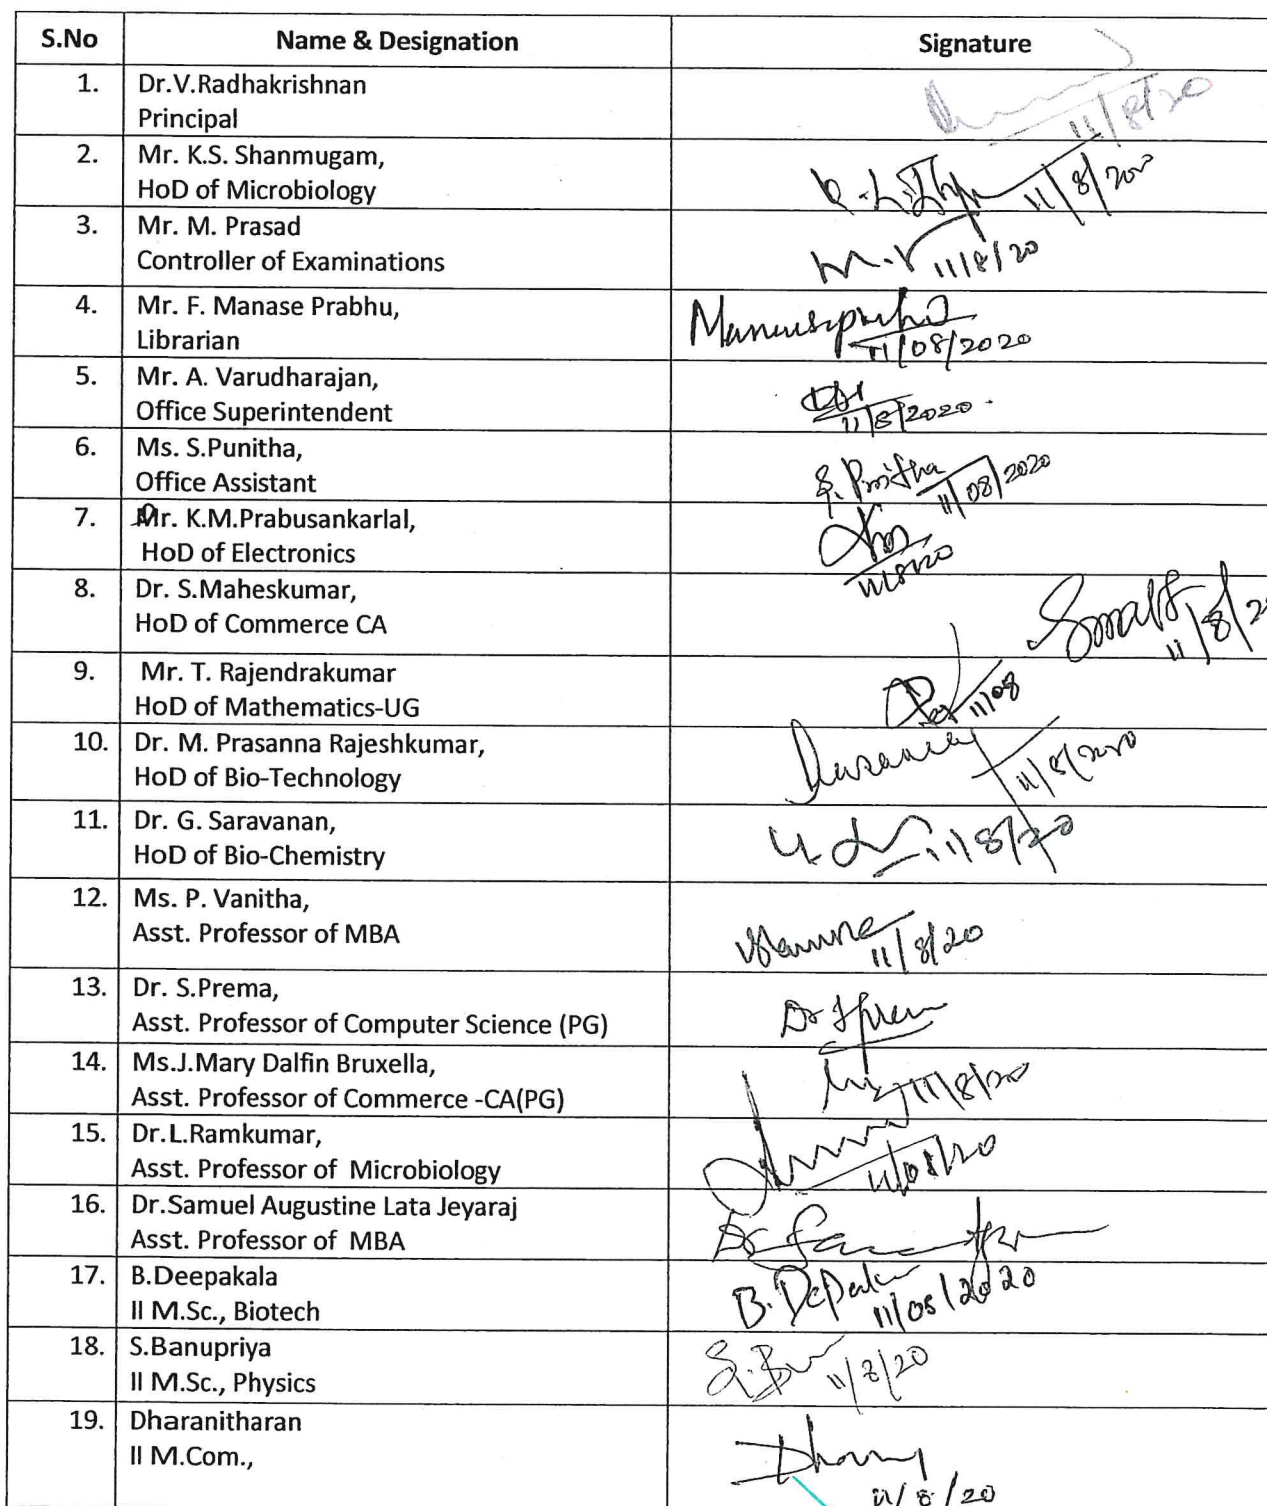 S.No Name & Designation Signature
1. Dr.V.Radhakrishnan
Principal
11/8/20
2. Mr. K.S. Shanmugam,
HoD of Microbiology
11/8/2020
3. Mr. M. Prasad
Controller of Examinations
11/8/20
4. Mr. F. Manase Prabhu,
Librarian
11/08/2020
5. Mr. A. Varudharajan,
Office Superintendent
11/8/2020
6. Ms. S.Punitha,
Office Assistant
11/08/2020
7. Dr. K.M.Prabusankarlal,
HoD of Electronics
11/8/20
8. Dr. S.Maheskumar,
HoD of Commerce CA
11/8/20
9. Mr. T. Rajendrakumar
HoD of Mathematics-UG
11/08
10. Dr. M. Prasanna Rajeshkumar,
HoD of Bio-Technology
11/8/2020
11. Dr. G. Saravanan,
HoD of Bio-Chemistry
11/8/20
12. Ms. P. Vanitha,
Asst. Professor of MBA
11/8/20
13. Dr. S.Prema,
Asst. Professor of Computer Science (PG)
14. Ms.J.Mary Dalfin Bruxella,
Asst. Professor of Commerce -CA(PG)
11/8/2020
15. Dr.L.Ramkumar,
Asst. Professor of Microbiology
11/08/20
16. Dr.Samuel Augustine Lata Jeyaraj
Asst. Professor of MBA
17. B.Deepakala
II M.Sc., Biotech
11/08/2020
18. S.Banupriya
II M.Sc., Physics
11/8/20
19. Dharanitharan
II M.Com.,
11/8/20